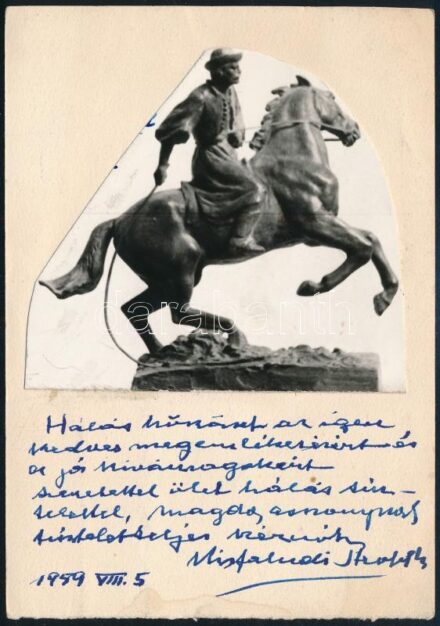 darabanth
Hálás köszönet az igen
kedves megemlékezésért és
a jó kívánságokért
szeretettel ölel hálás tisz-
telettel, Magda asszonynak
tiszteletteljes kézcsók
Kisfaludi Strobl Zs
1959 VIII. 5